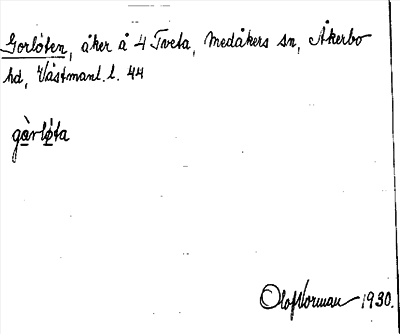 Gorlöten, åker å 4 Tveta, Medåkers sn, Åkerbo
hd, Västmanl. l. 44
gàrlø̀ta
Olof Norman 1930.